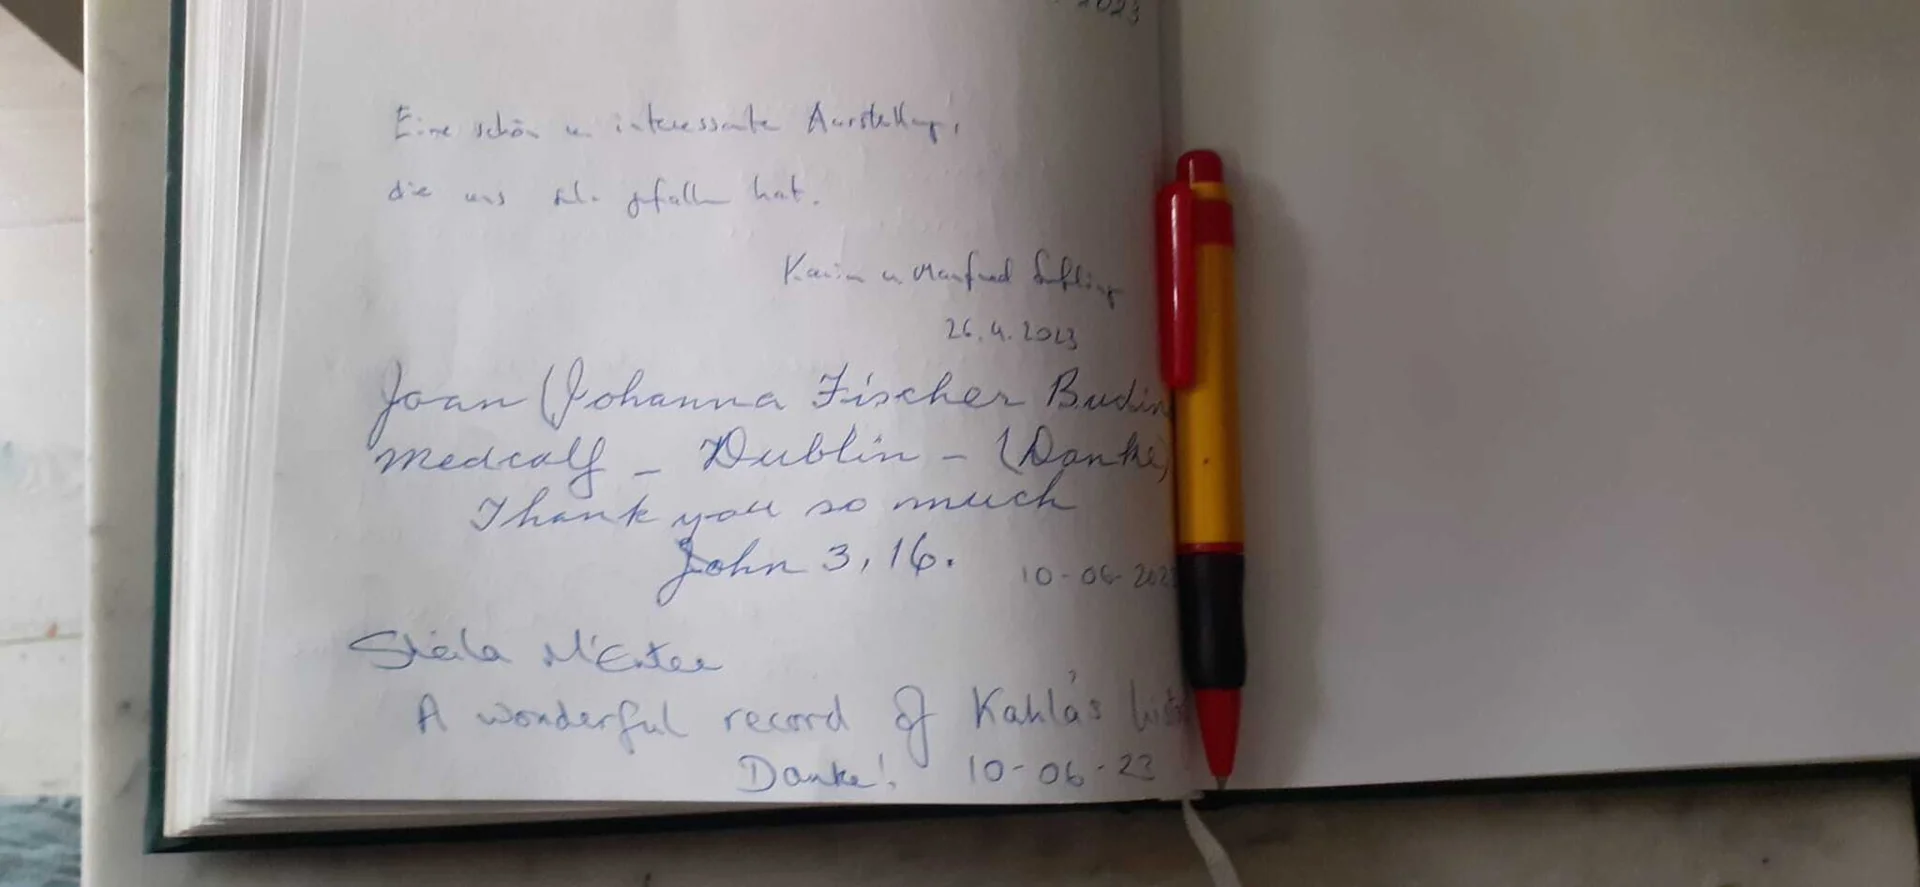 2023
Eine schön u. interessante Ausstellung,
die uns sehr gefallen hat.
Karin u. Manfred
26.4.2023
Joan (Johanna Fischer Budin
Medcalf - Dublin - (Danke)
Thank you so much
John 3, 16.
10-06-202
Sheila M'Entee
A wonderful record of Kahla's
Danke! 10-06-23